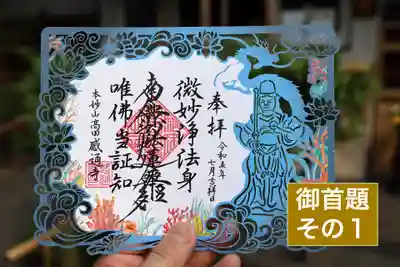 奉拝
令和五年
七月
微妙浄法身
南無妙法蓮華経
唯佛当証知
本妙山 高田 感通寺
御首題
その1